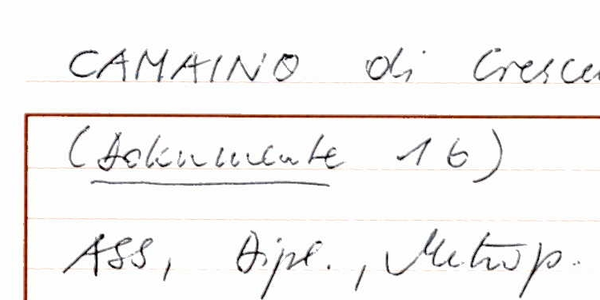 CAMAINO di Cresce
(Dokumente 16)
ASS, Dipl., Metrop.